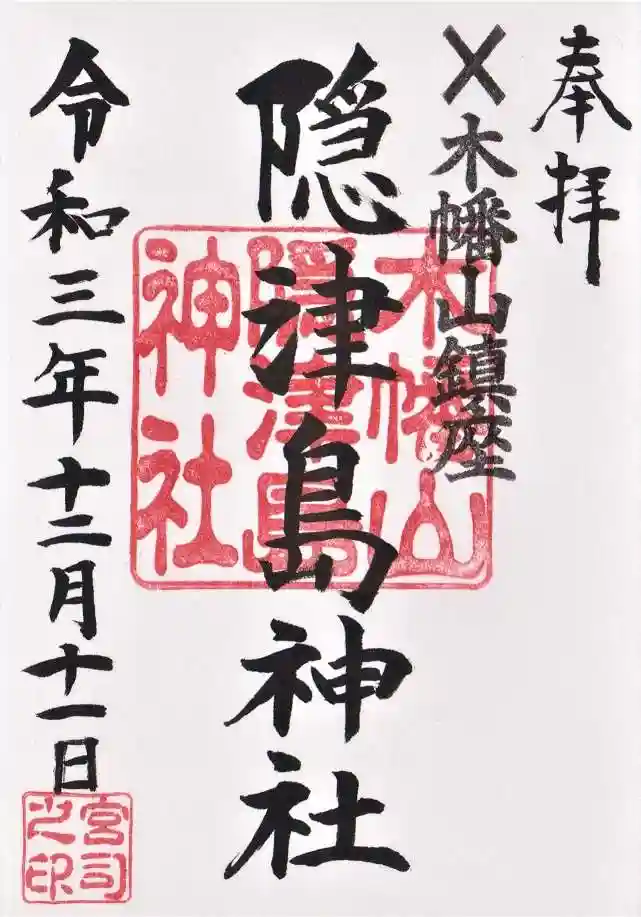 奉拝
〤木幡山鎮座
隠津島神社
令和三年十二月十一日
木幡山
隠津島
神社
宮司
之印